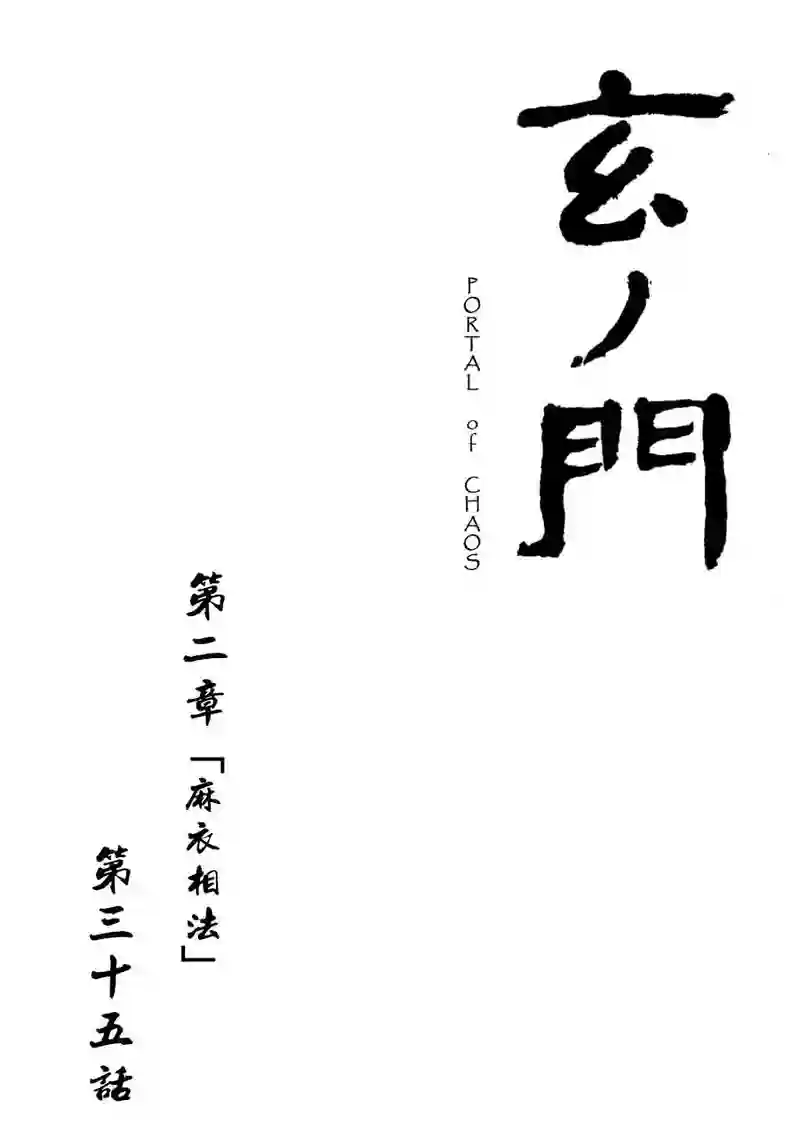 玄ノ門
PORTAL of CHAOS
第二章「麻衣相法」
第三十五話